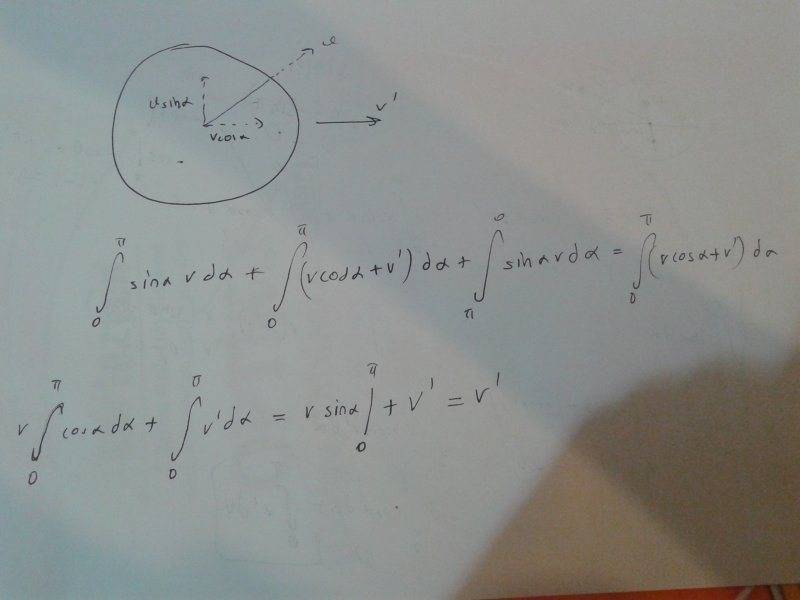 v
v sinα
v'
v cosα
∫₀^π sinα v dα + ∫₀^π (v cosα + v') dα + ∫_π^0 sinα v dα = ∫₀^π (v cosα + v') dα
v ∫₀^π cosα dα + ∫₀^π v' dα = v sinα |₀^π + v' = v'